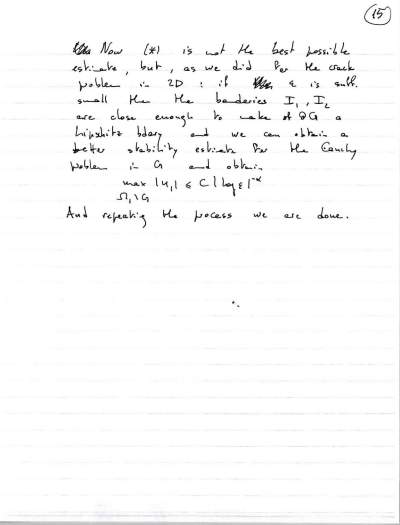 15
Now (*) is not the best possible
estimate, but, as we did for the crack
problem in 2D : if ε is suff.
small then the boundaries I₁, I₂
are close enough to make of ∂G a
Lipschitz bdary and we can obtain a
better stability estimate for the Cauchy
problem in G and obtain
max |u₁| ≤ C |log ε|^-α
Ω₁\G
And repeating the process we are done.